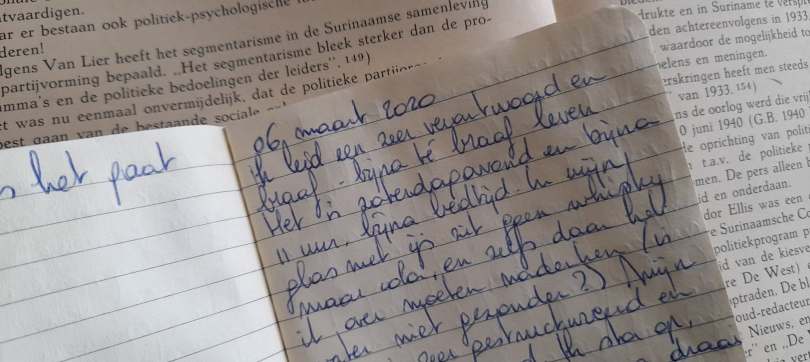 tvaardigen.
ar er bestaan ook politiek-psychologische
deren!
lgens Van Lier heeft het segmentarisme in de Surinaamse samenleving
partijvorming bepaald. „Het segmentarisme bleek sterker dan de pro-
mma's en de politieke bedoelingen der leiders". 149)
t was nu eenmaal onvermijdelijk, dat de politieke partijvor
best gaan van de bestaande sociale
het paat
06 maart 2020
Ik leid een zeer verantwoord en
braaf - bijna té braaf leven
Het is zaterdagavond en bijna
11 uur, bijna bedtijd. In mijn
glas met ijs zit geen whisky
maar cola, en zelfs daar heb
ik over moeten nadenken (is
water niet gezonder?) Mijn
zeer gestructureerd en
ik sta op,
drukte en in Suriname te verspr
den achtereenvolgens in 1931
waardoor de mogelijkheid to
elens en meningen.
erskringen heeft men steeds
van 1933. 154)
ns de oorlog werd die vrij
0 juni 1940 (G.B. 1940
le oprichting van polit
t.a.v. de politieke
men. De pers alleen
id en onderdaan.
dor Ellis was een
e Surinaamsche Co
politiekprogram p
d van de kiesve
re De West)
ptraden. De bla
oud-redacteur
Nieuws, en
r" en „De W